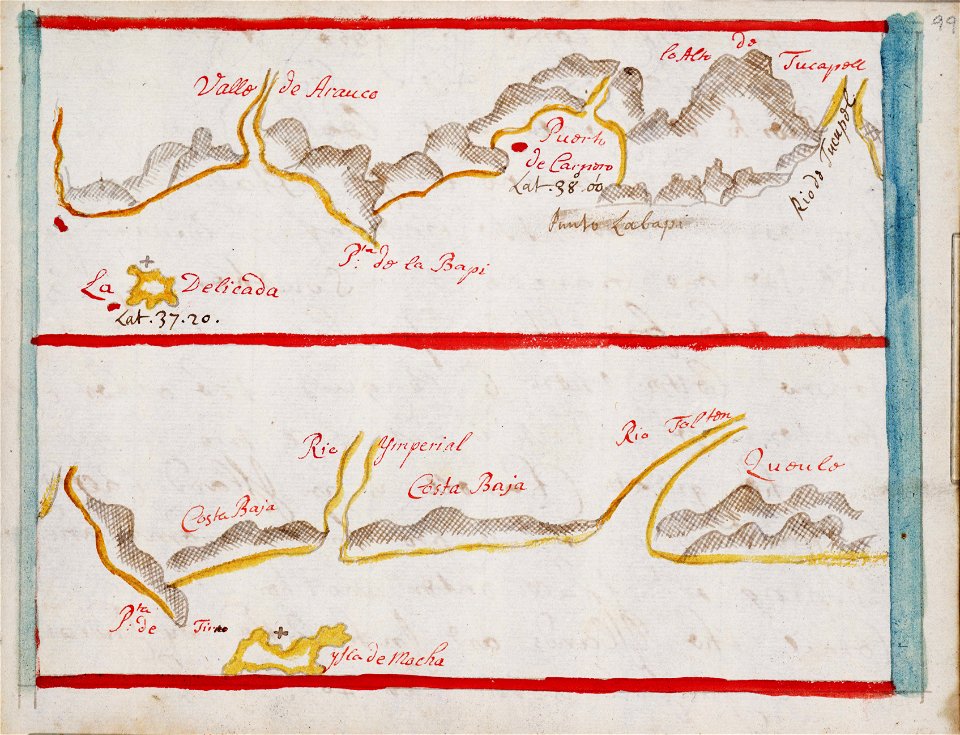 99
Valle de Arauco
lo Alto de Tucapell
Puerto
de Carnero
Lat. 38.00
Rio de Tucapel
Punto Labapi
P.ta de la Bapi
La Delicada
Lat. 37.20.
Rio Ymperial
Rio Tolten
Costa Baja
Costa Baja
Queule
P.ta de Tirua
ysla de Mocha